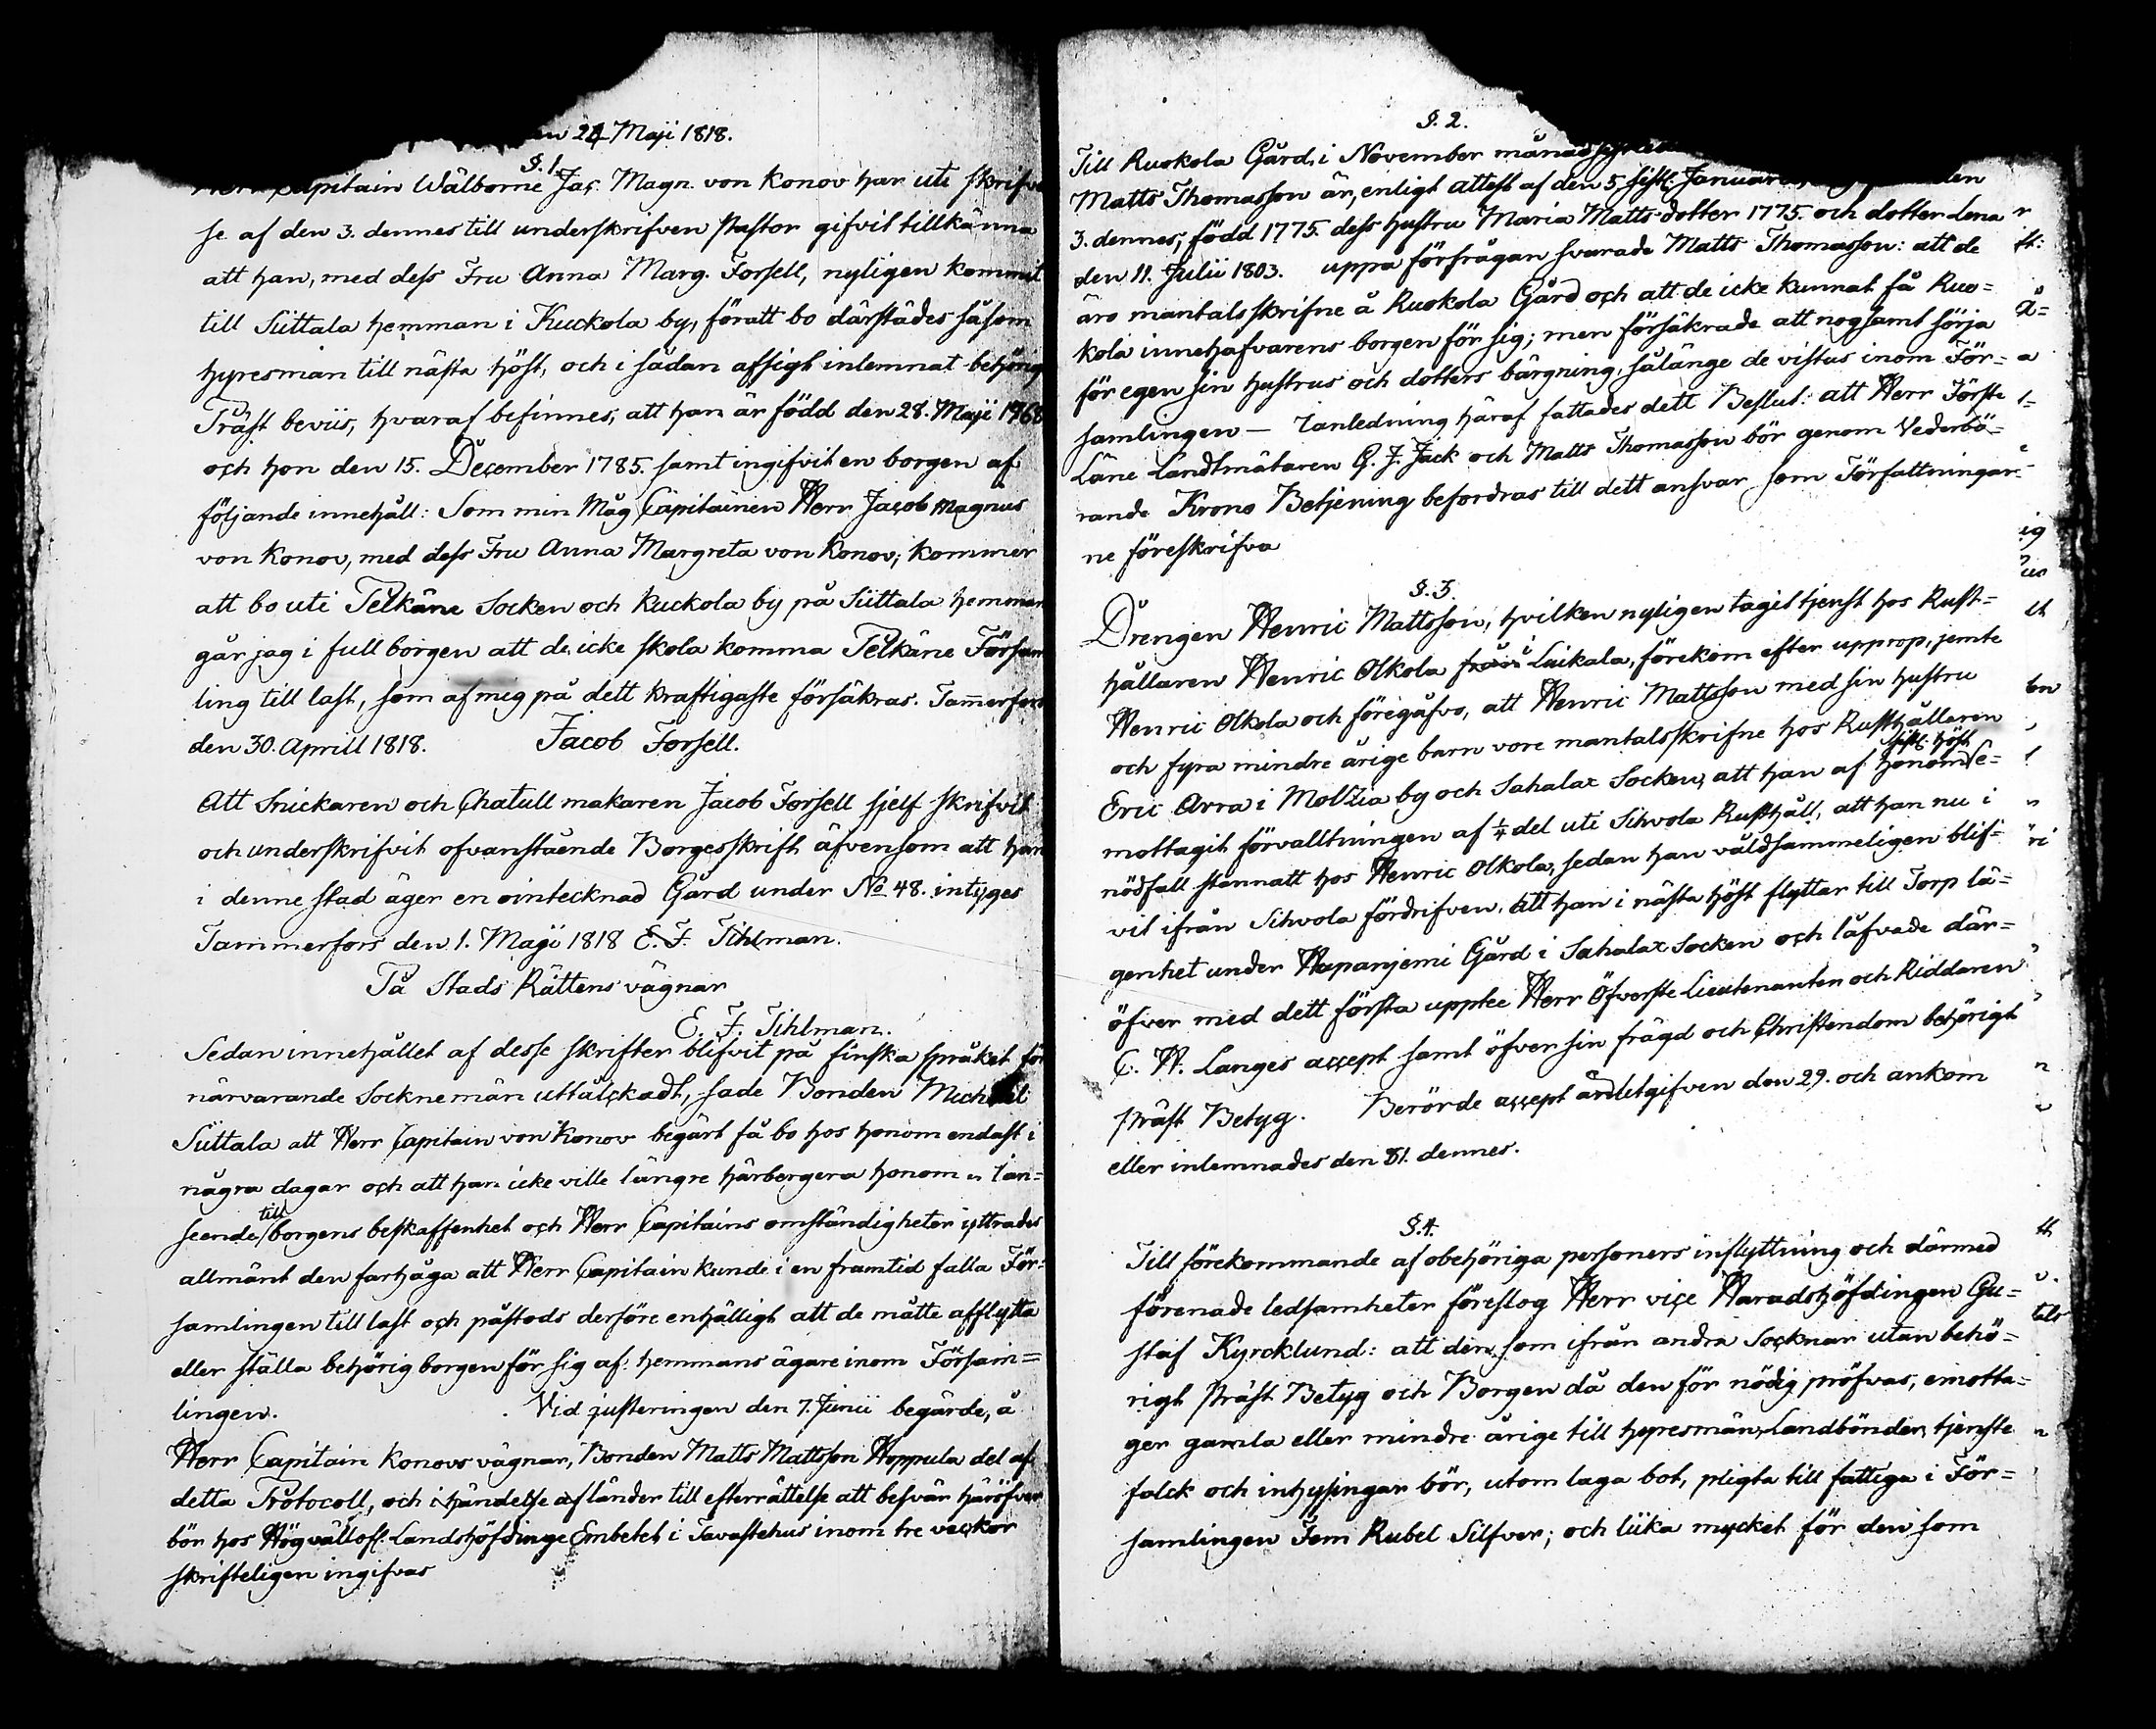 den 24 Maji 1818.
§. 1.
Herr Capitain Wälborne Jac. Magn. von Konov har uti skrifvel
se af den 3. dennes till underskrifven Pastor gifvit tillkänna
att han, med dess Fru Anna Marg. Forsell, nyligen kommit
till Siittala hemman i Kuckola by, föratt bo därstädes såsom
hyresman till nästa höst, och i sådan afsigt inlemnat behörig
Präst beviis, hvaraf befinnes, att han är född den 28. Maji 1768
och hon den 15. December 1785. samt ingifvit en borgen af
följande innehåll: Som min Måg Capitainen Herr Jacob Magnus
von Konov, med dess Fru Anna Margreta von Konov, kommer
att bo uti Pelkäne Socken och Kuckola by på Siittala hemman
går jag i full borgen att de icke skola komma Pelkäne Försam
ling till last, som af mig på dett kraftigaste försäkras. Tammerfors
den 30. Aprill 1818. Jacob Forsell.
Att Snickaren och Chatull makaren Jacob Forsell sjelf skrifvit
och underskrifvit ofvanstående Borgesskrift äfvensom att han
i denne stad äger en ointecknad Gård under No 48. intyges
Tammerfors den 1. Maji 1818 E. F. Tihlman.
På Stads Rättens vägnar
E. F. Tihlman.
Sedan innehållet af desse skrifter blifvit på finska språket för
närvarande Socknemän uttålckadt, sade Bonden Michael
Siittala att Herr Capitain von Konov begärt få bo hos honom endast i
några dagar och att han icke ville längre härbergera honom. I an=
seende till borgens beskaffenhet och Herr Capitains omständigheter yttrades
allmänt den farhåga att Herr Capitain kunde i en framtid falla För=
samlingen till last och påstods derföre enhälligt att de måtte afflytta
eller ställa behörig borgen för sig af hemmans ägare inom Försam=
lingen. Vid justeringen den 7. Junii begärde, å
Herr Capitain Konovs vägnar, Bonden Matts Mattsson Hoppula del af
detta Protocoll, och i händelse af länder till efterrättelse att besvär häröfver
bör hos Högvällofl. Landshöfdinge Embetet i Tavastehus inom tre veckor
skrifteligen ingifvas
§. 2.
Till Ruokola Gård, i November månad
Matts Thomasson är, enligt attest af den 5. sistl. Januarii den
3. dennes, född 1775. dess hustru Maria Matts dotter 1775. och dotter Lena
den 11. Julii 1803. uppå förfrågan svarade Matts Thomasson: att de
äro mantalsskrifne å Ruokola Gård och att de icke kunnat få Ruo=
kola innehafvarens borgen för sig; men försäkrade att nogsamt sörja
för egen sin hustrus och dotters bärgning, sålänge de vistas inom För=
samlingen — I anledning häraf fattades dett Beslut: att Herr Förste
Läne Landtmätaren G. J. Jack och Matts Thomasson bör genom Vederbö=
rande Krono Betjening befordras till dett ansvar som Författningar=
ne föreskrifva
§. 3.
Drengen Henric Mattsson, hvilken nyligen tagit tjenst hos Rust=
hållaren Henric Olkola från i Laikala, förekom efter upprop, jemte
Henric Olkola och föregåfvo, att Henric Mattsson med sin hustru
och fyra mindre årige barn vore mantalsskrifne hos Rusthållaren
Eric Arra i Moltzia by och Sahalax Socken, att han af honom sistl. höst e=
mottagit förvalltningen af 1/4 del uti Sihvola Rusthåll, att han nu i
nödfall stannatt hos Henric Olkola, sedan han våldsammeligen blif=
vit ifrån Sihvola fördrifven. Att han i nästa höst flyttar till Torp lä=
genhet under Haapanjemi Gård i Sahalax Socken och låfvade där=
öfver med dett första upptee Herr Öfverste Lieutenanten och Riddaren
C. H. Langes accept samt öfver sin frägd och Christendom behörigt
Präst Betyg. Berörde accept andetgifven den 29. och ankom
eller inlemnades den 31. dennes.
§. 4.
Till förekommande af obehöriga personers inflyttning och därmed
förenade ledsamheter föreslog Herr vice Häradshöfdingen Gu=
staf Kyrcklund: att den som ifrån andra Socknar utan behö=
rigt Präst Betyg och Borgen då den för nödig pröfvas, emotta=
ger gamla eller mindre årige till hyresmän, Landbönder, tjenste
folck och inhysingar bör, utom laga bot, pligta till fattiga i För=
samlingen Fem Rubel Silfver; och liika mycket för den som